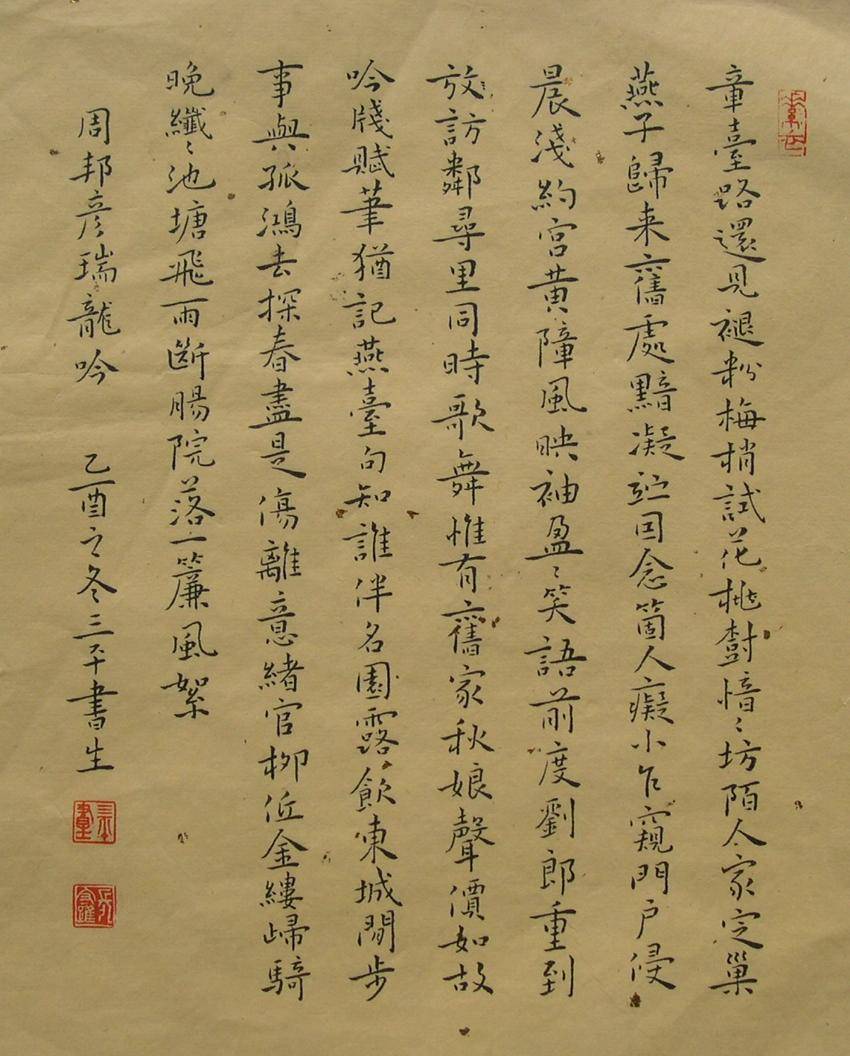 章臺路還見褪粉梅梢試花桃樹愔〻坊陌人家定巢
燕子歸来舊處黯凝竚因念箇人癡小乍窺門戶侵
晨淺約宮黄障風映袖盈〻笑語前度劉郎重到
放訪鄰尋里同時歌舞惟有舊家秋娘聲價如故
吟牋賦筆猶記燕臺句知誰伴名園露飲東城閒步
事與孤鴻去探春盡是傷離意緒官柳低金縷歸騎
晚纖〻池塘飛雨斷腸院落一簾風絮
周邦彦瑞龍吟 乙酉之冬三平書生